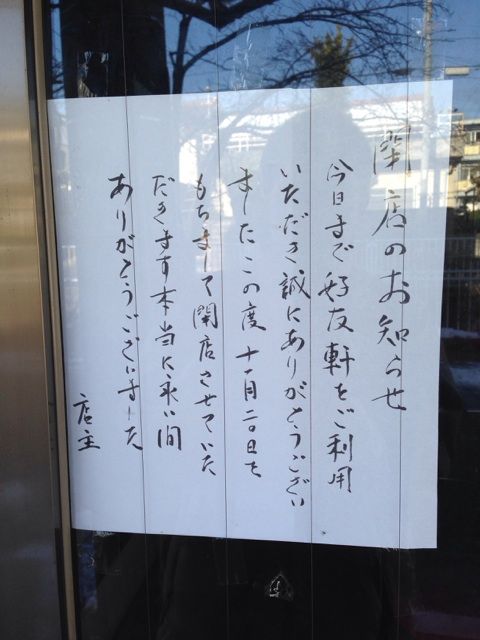 閉店のお知らせ
今日まで好友軒をご利用
いただき誠にありがとうござい
ましたこの度十一月二〇日を
もちまして閉店させていた
だきます本当に永い間
ありがとうございました
店主